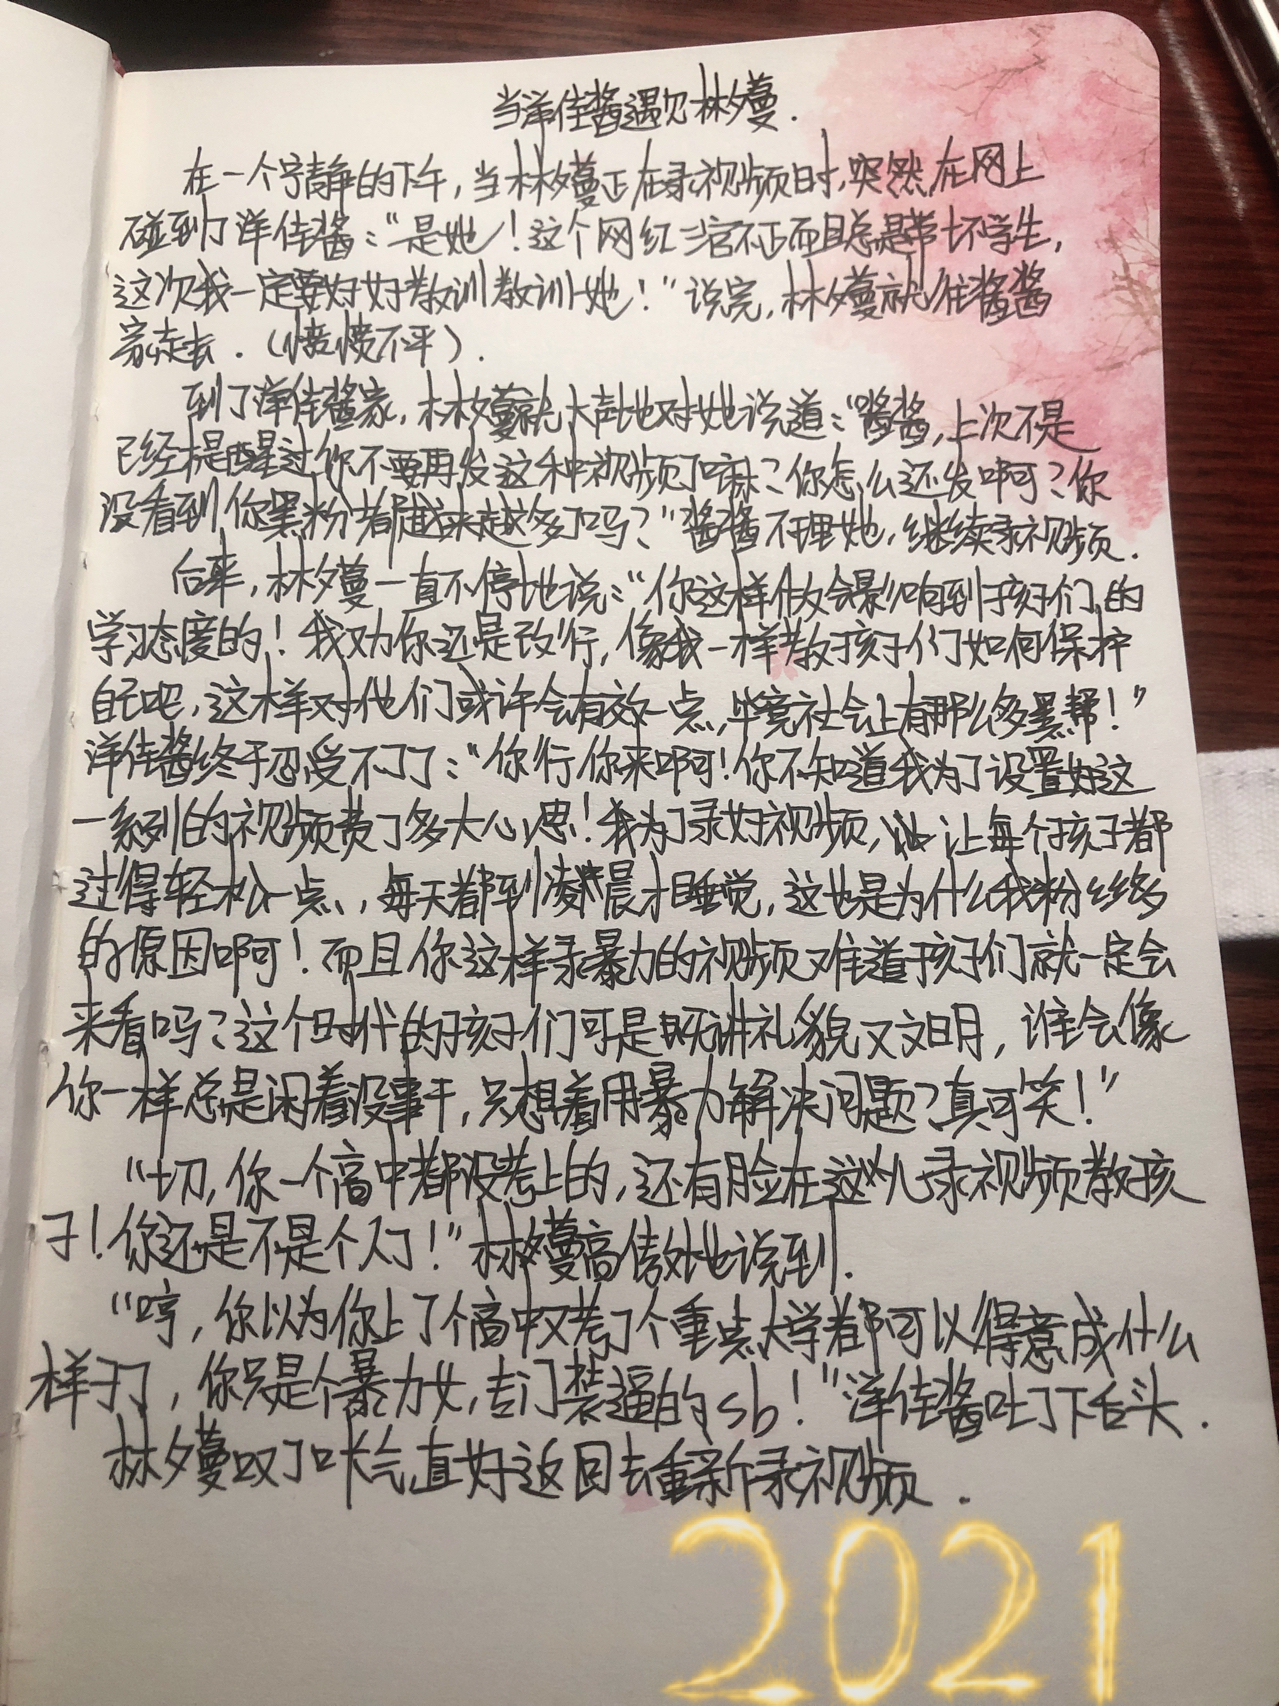 当洋佳酱遇见林夕蔓.
在一个宁静的下午,当林夕蔓正在录视频时,突然在网上
碰到了洋佳酱:“是她!这个网红三官不正而且总是带坏学生,
这次我一定要好好教训教训她!”说完,林夕蔓就往酱酱
家走去.(愤愤不平).
到了洋佳酱家,林夕蔓就大声地对她说道:“酱酱,上次不是
已经提醒过你不要再发这种视频了嘛?你怎么还发啊?你
没看到你黑粉都越来越多了吗?”酱酱不理她,继续录视频.
后来,林夕蔓一直不停地说:“你这样做会影响到孩子们的
学习态度的!我劝你还是改行,像我一样教孩子们如何保护
自己吧,这样对他们或许会有效一点,毕竟社会上有那么多黑帮!”
洋佳酱终于忍受不了了:“你行你来啊!你不知道我为了设置好这
一系列的视频费了多大心思!我为了录好视频,让每个孩子都
过得轻松一点,每天都到凌晨才睡觉,这也是为什么我粉丝多
的原因啊!而且你这样录暴力的视频难道孩子们就一定会
来看吗?这个时代的孩子们可是既讲礼貌又文明,谁会像
你一样总是闲着没事干,只想着用暴力解决问题?真可笑!”
“切,你一个高中都没考上的,还有脸在这儿录视频教孩
子!你还是不是个人了!”林夕蔓高傲地说到.
“哼,你以为你上了个高中又考了个重点大学都可以得意成什么
样子了,你只是个暴力女,专门装逼的sb!”洋佳酱吐了下舌头.
林夕蔓叹了口气,直好返回去重新录视频.
2021